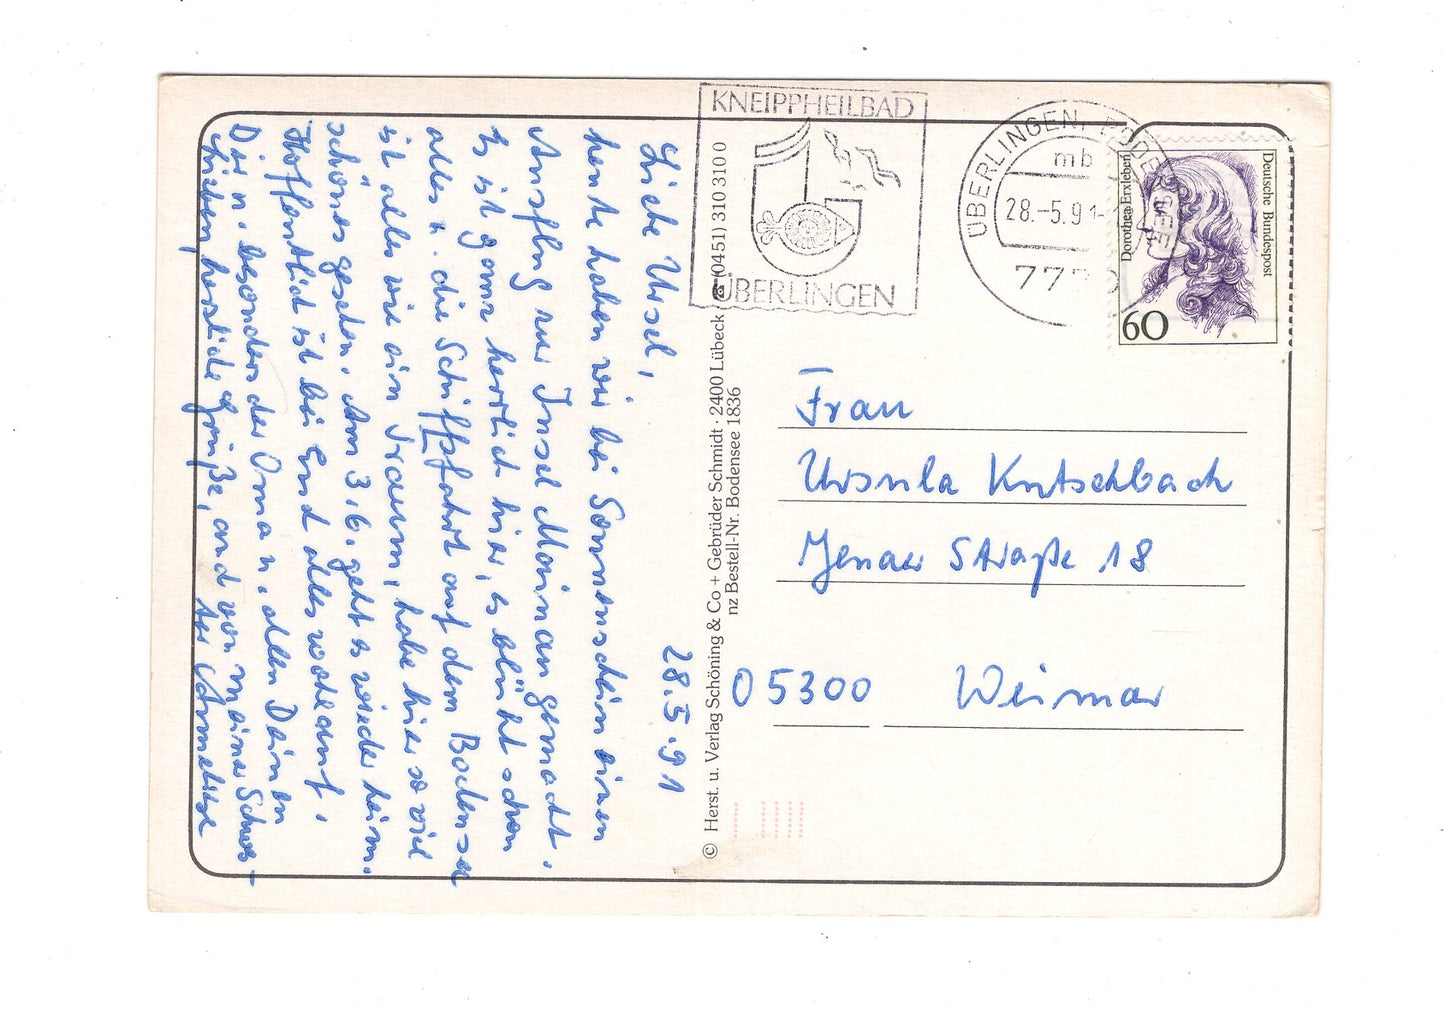 28.5.91
Liebe Ursel,
heute haben wir bei Sonnenschein einen
Ausflug zur Insel Mainau gemacht.
Es ist ganz herrlich hier, es blüht schon
alles u. die Schiffsfahrt auf dem Bodensee
ist alles wie ein Traum, habe hier so viel
schönes gesehen. Am 3.6. geht es wieder heim.
Hoffentlich ist bei Euch alles wohlauf.
Dir u. besonders der Oma u. allen Deinen
Lieben, herzliche Grüße, auch von meiner Schwes-
ter Anneliese
© Herst. u. Verlag Schöning & Co + Gebrüder Schmidt · 2400 Lübeck ☎ (0451) 310 310 0
nz Bestell-Nr. Bodensee 1836
KNEIPPHEILBAD
ÜBERLINGEN
ÜBERLINGEN, BODENSEE
mb
28.-5.91-
777
Deutsche Bundespost
Dorothea Erxleben
60
Frau
Ursula Kutschbach
Jenaer Straße 18
O 5300 Weimar